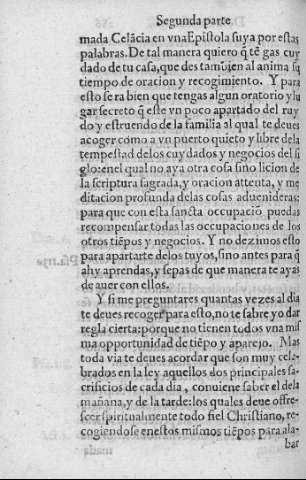 Segunda parte
mada Celãcia en vna Epistola suya por estas
palabras. De tal manera quiero q̃ tẽgas cuy
dado de tu casa, que des tambien al anima su
tiempo de oracion y recogimiento. Y para
esto sera bien que tengas algun oratorio y lu
gar secreto q̃ este vn poco apartado del ruy
do y estruendo de la familia al qual te deues
acoger como a vn puerto quieto y libre dela
tempestad delos cuydados y negocios del si
glo: enel qual no aya otra cosa sino licion de
la scriptura sagrada, y oracion attenta, y me
ditacion profunda delas cosas aduenideras:
para que con esta sancta occupaciõ puedas
recompensar todas las occupaciones de los
otros tiẽpos y negocios. Y no dezimos esto
para apartarte delos tuyos, sino antes para q̃
ahy aprendas, y sepas de que manera te ayas
de auer con ellos.
Y si me preguntares quantas vezes al dia
te deues recoger para esto, no te sabre yo dar
regla cierta: porque no tienen todos vna mis
ma oportunidad de tiẽpo y aparejo. Mas
toda via te deues acordar que son muy cele
brados en la ley aquellos dos principales sa
crificios de cada dia, conuiene saber el dela
mañana, y de la tarde: los quales deue offre-
scer spiritualmente todo fiel Christiano, re-
cogiendose enestos mismos tiẽpos para ala-
bar